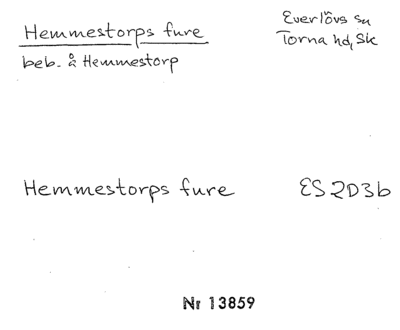 Hemmestorps fure
Everlövs sn
Torna hd, Sk
beb. å Hemmestorp
Hemmestorps fure
ES 2D3b
Nr 13859